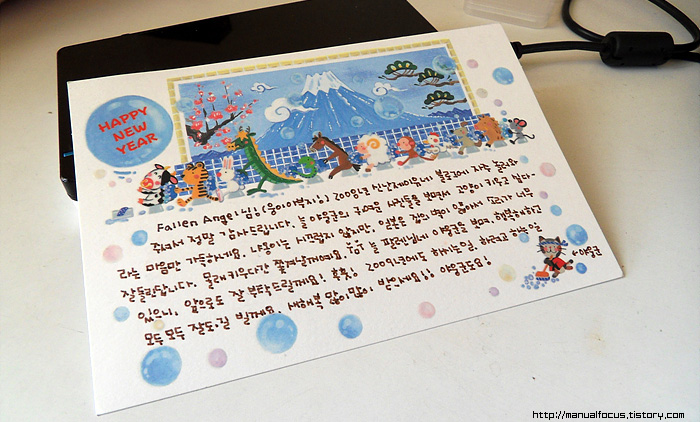 HAPPY
NEW
YEAR
Fallen Angel님! (웅이아부지!) 2009년 신난제이유네 블로그에 자주 놀러와
줘서 정말 감사드립니다. 늘 야옹군의 귀여운 사진들을 보면서 고양이 키우고 싶다
라는 마음만 가득하네요. 냥이는 시끄럽지 않지만, 일본은 집의 벽이 얇아서 소리가 너무
잘들린답니다. 몰래키우다간 쫓겨날꺼예요. 늘 폴런님네 야옹군을 보며 행복해하고
있으니, 앞으로도 잘 부탁드릴께요! 훗훗! 2009년에도 하시는일, 하려고 하는 일
모두모두 잘되길 빌께요. 새해복 많이많이 받으세요!! 야옹군도요!
←야옹군
http://manualfocus.tistory.com